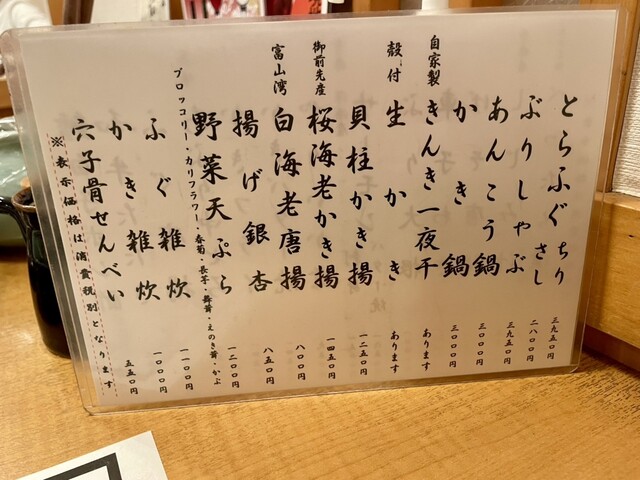 とらふぐちり 三九五〇円
さし 二八〇〇円
ぶりしゃぶ 三九五〇円
あんこう鍋 三〇〇〇円
かき鍋 三〇〇〇円
自家製 きんき一夜干 あります
殻付 生かき あります
貝柱かき揚 一二五〇円
御前先産 桜海老かき揚 一四五〇円
富山湾 白海老唐揚 八〇〇円
揚げ銀杏 八五〇円
野菜天ぷら 一二〇〇円
ブロッコリー・カリフラワー・春菊・長芋・舞茸・えのき茸・かぶ
ふぐ雑炊 一一〇〇円
かき雑炊 一〇〇〇円
穴子骨せんべい 五五〇円
※表示価格は消費税別となります